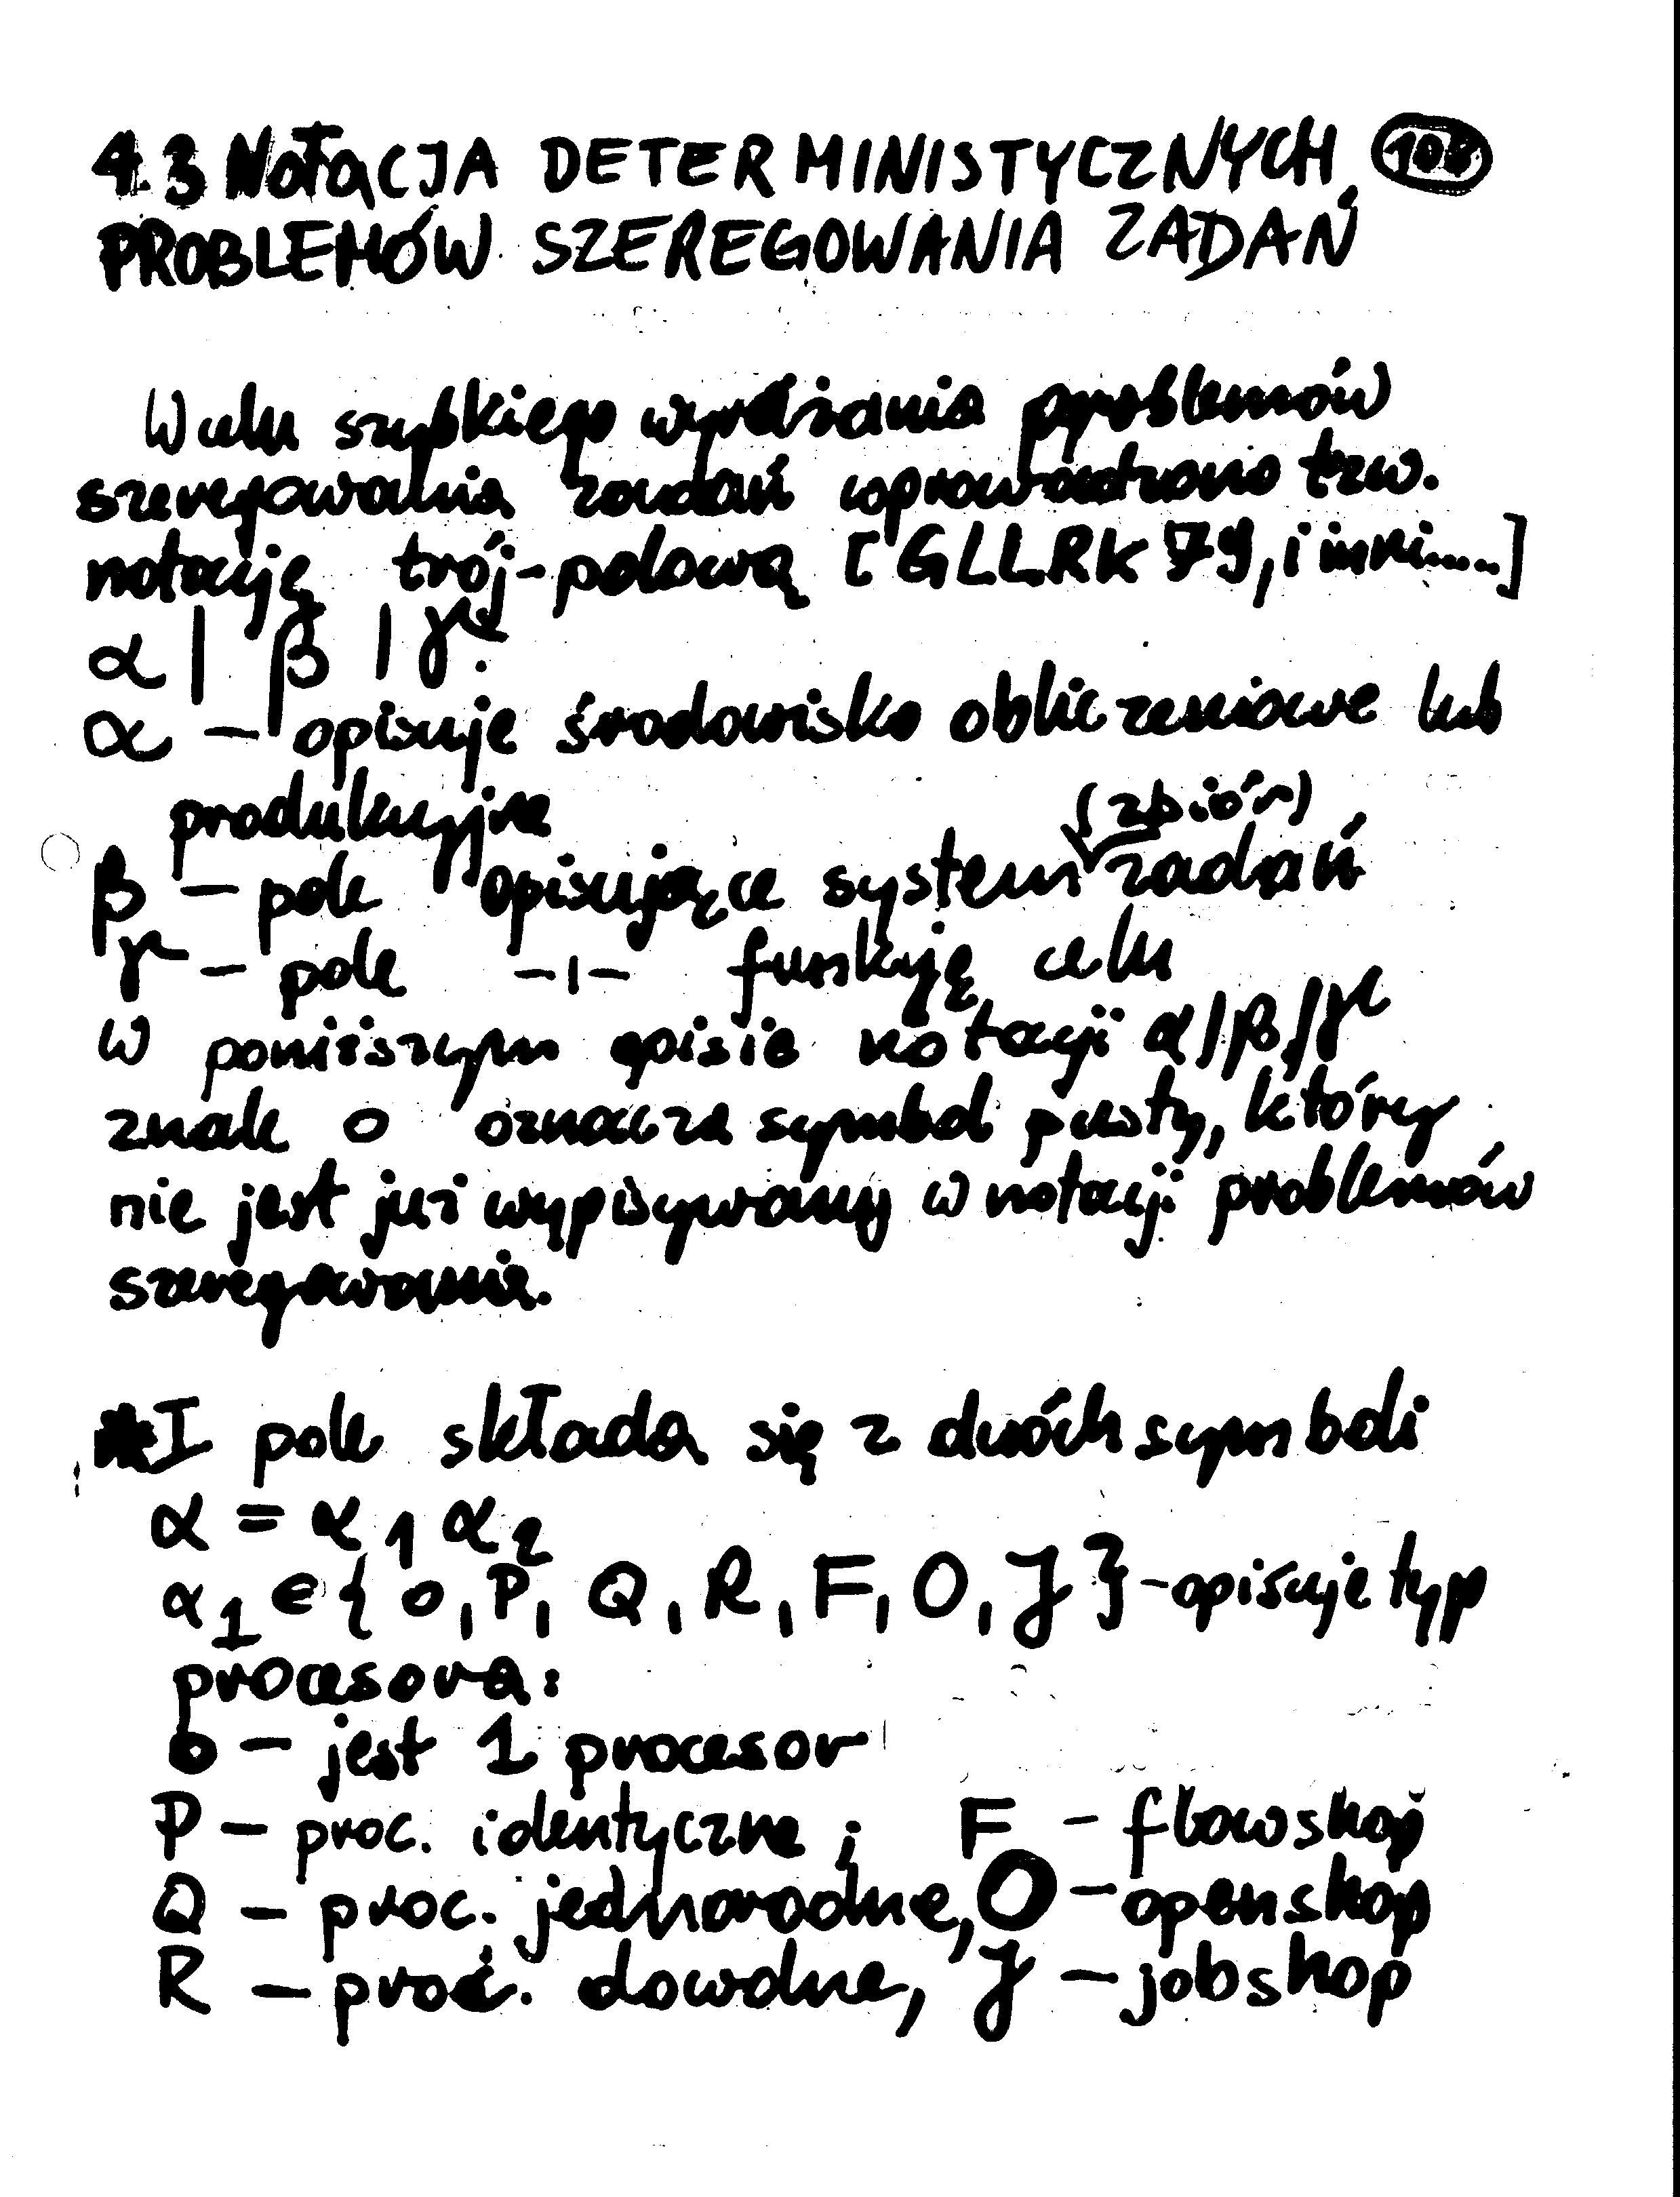 4.3 NOTACJA DETERMINISTYCZNYCH
PROBLEMÓW SZEREGOWANIA ZADAŃ
W celu szybkiego wyrażania problemów
szeregowania zadań wprowadzono tzw.
notację trój-polową [GLLRK 79, i inni.....]
α | β | γ.
α – opisuje środowisko obliczeniowe lub
produkcyjne
(zbiór)
β – pole opisujące system zadań
γ – pole –ı– funkcję celu
W poniższym opisie notacji α/β/γ
znak o oznacza symbol pusty, który
nie jest już wypisywany w notacji problemów
szeregowania.
*I pole składa się z dwóch symboli
α = α1 α2
α1 ∈ { o, P, Q, R, F, O, J } - opisuje typ
procesora:
o – jest 1 procesor
P – proc. identyczne ; F – flowshop
Q – proc. jednorodne, O – openshop
R – proc. dowolne, J – jobshop